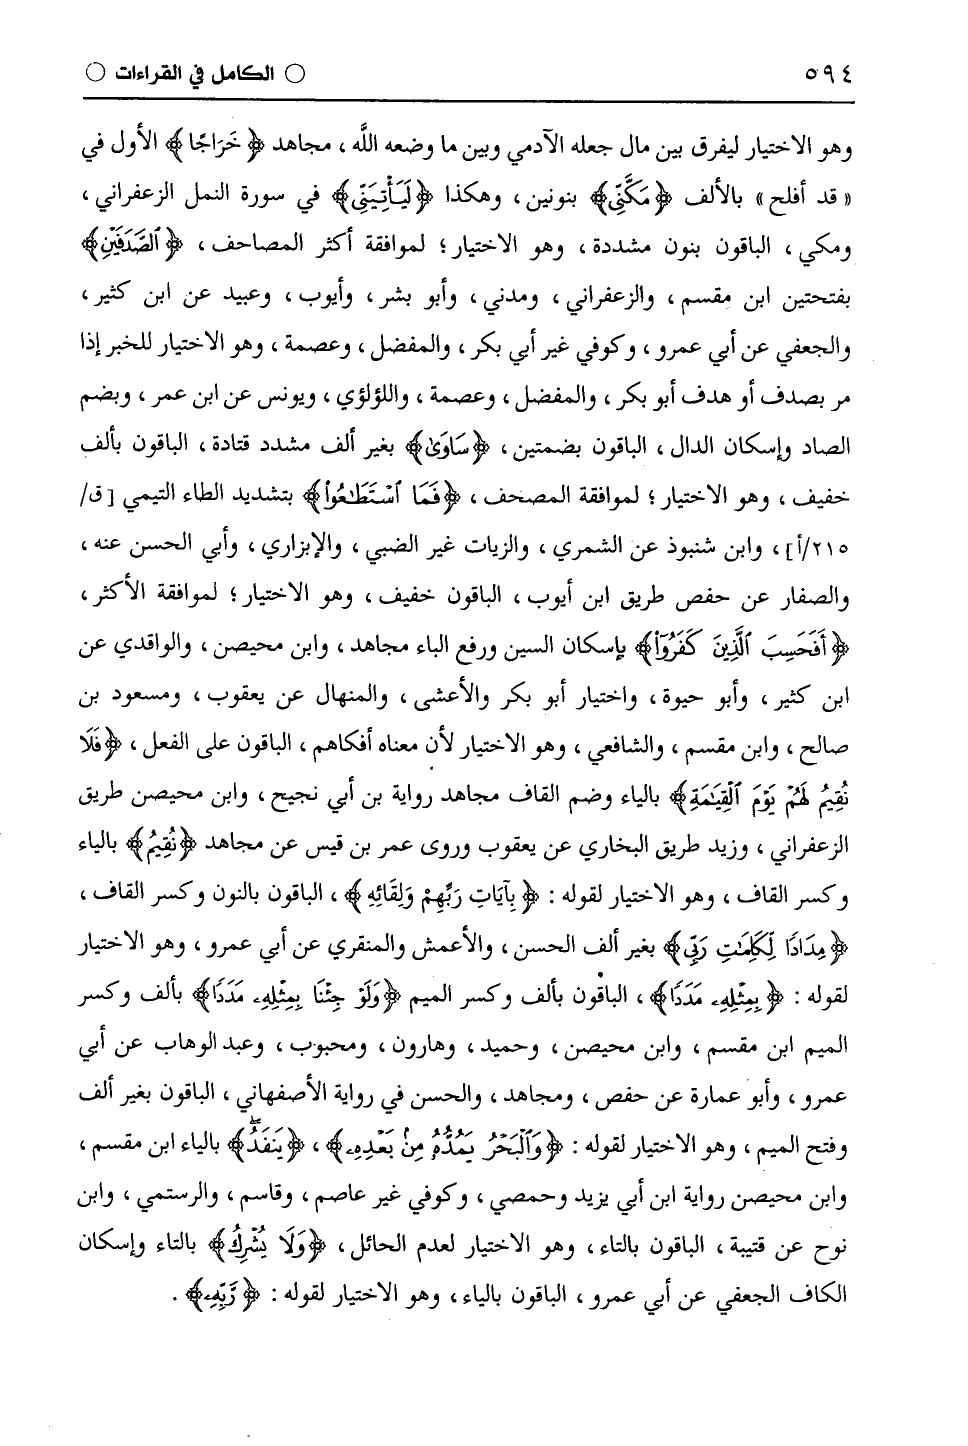 ٥٩٤ ○ الكامل في القراءات ○
وهو الاختيار ليفرق بين مال جعله الآدمي وبين ما وضعه اللَّه، مجاهد ﴿خَرَاجًا﴾ الأول في
«قد أفلح» بالألف ﴿مَكَّنِّي﴾ بنونين، وهكذا ﴿لَيَأْتِيَنِّي﴾ في سورة النمل الزعفراني،
ومكي، الباقون بنون مشددة، وهو الاختيار؛ لموافقة أكثر المصاحف، ﴿ٱلصَّدَفَيْنِ﴾
بفتحتين ابن مقسم، والزعفراني، ومدني، وأبو بشر، وأيوب، وعبيد عن ابن كثير،
والجعفي عن أبي عمرو، وكوفي غير أبي بكر، والمفضل، وعصمة، وهو الاختيار للخبر إذا
مر بصدف أو هدف أبو بكر، والمفضل، وعصمة، واللؤلؤي، ويونس عن ابن عمر، وبضم
الصاد وإسكان الدال، الباقون بضمتين، ﴿سَاوَىٰ﴾ بغير ألف مشدد قتادة، الباقون بألف
خفيف، وهو الاختيار؛ لموافقة المصحف، ﴿فَمَا ٱسْتَطَٰعُوٓا۟﴾ بتشديد الطاء التيمي [ق/
٢١٥/أ]، وابن شنبوذ عن الشمري، والزيات غير الضبي، والإبزاري، وأبي الحسن عنه،
والصفار عن حفص طريق ابن أيوب، الباقون خفيف، وهو الاختيار؛ لموافقة الأكثر،
﴿أَفَحَسِبَ ٱلَّذِينَ كَفَرُوٓا۟﴾ بإسكان السين ورفع الباء مجاهد، وابن محيصن، والواقدي عن
ابن كثير، وأبو حيوة، واختيار أبو بكر والأعشى، والمنهال عن يعقوب، ومسعود بن
صالح، وابن مقسم، والشافعي، وهو الاختيار لأن معناه أفكاهم، الباقون على الفعل، ﴿فَلَا
نُقِيمُ لَهُمْ يَوْمَ ٱلْقِيَٰمَةِ﴾ بالياء وضم القاف مجاهد رواية بن أبي نجيح، وابن محيصن طريق
الزعفراني، وزيد طريق البخاري عن يعقوب وروى عمر بن قيس عن مجاهد ﴿نُقِيمُ﴾ بالياء
وكسر القاف، وهو الاختيار لقوله: ﴿بِآيَاتِ رَبِّهِمْ وَلِقَائِهِ﴾، الباقون بالنون وكسر القاف،
﴿مِدَادًا لِّكَلِمَٰتِ رَبِّى﴾ بغير ألف الحسن، والأعمش والمنقري عن أبي عمرو، وهو الاختيار
لقوله: ﴿بِمِثْلِهِۦ مَدَدًا﴾، الباقون بألف وكسر الميم ﴿وَلَوْ جِئْنَا بِمِثْلِهِۦ مَدَدًا﴾ بألف وكسر
الميم ابن مقسم، وابن محيصن، وحميد، وهارون، ومحبوب، وعبد الوهاب عن أبي
عمرو، وأبو عمارة عن حفص، ومجاهد، والحسن في رواية الأصفهاني، الباقون بغير ألف
وفتح الميم، وهو الاختيار لقوله: ﴿وَٱلْبَحْرُ يَمُدُّهُۥ مِنۢ بَعْدِهِۦ﴾، ﴿يَنفَدُ﴾ بالياء ابن مقسم،
وابن محيصن رواية ابن أبي يزيد وحمصي، وكوفي غير عاصم، وقاسم، والرستمي، وابن
نوح عن قتيبة، الباقون بالتاء، وهو الاختيار لعدم الحائل، ﴿وَلَا يُشْرِكْ﴾ بالتاء وإسكان
الكاف الجعفي عن أبي عمرو، الباقون بالياء، وهو الاختيار لقوله: ﴿رَبِّهِۦ﴾.